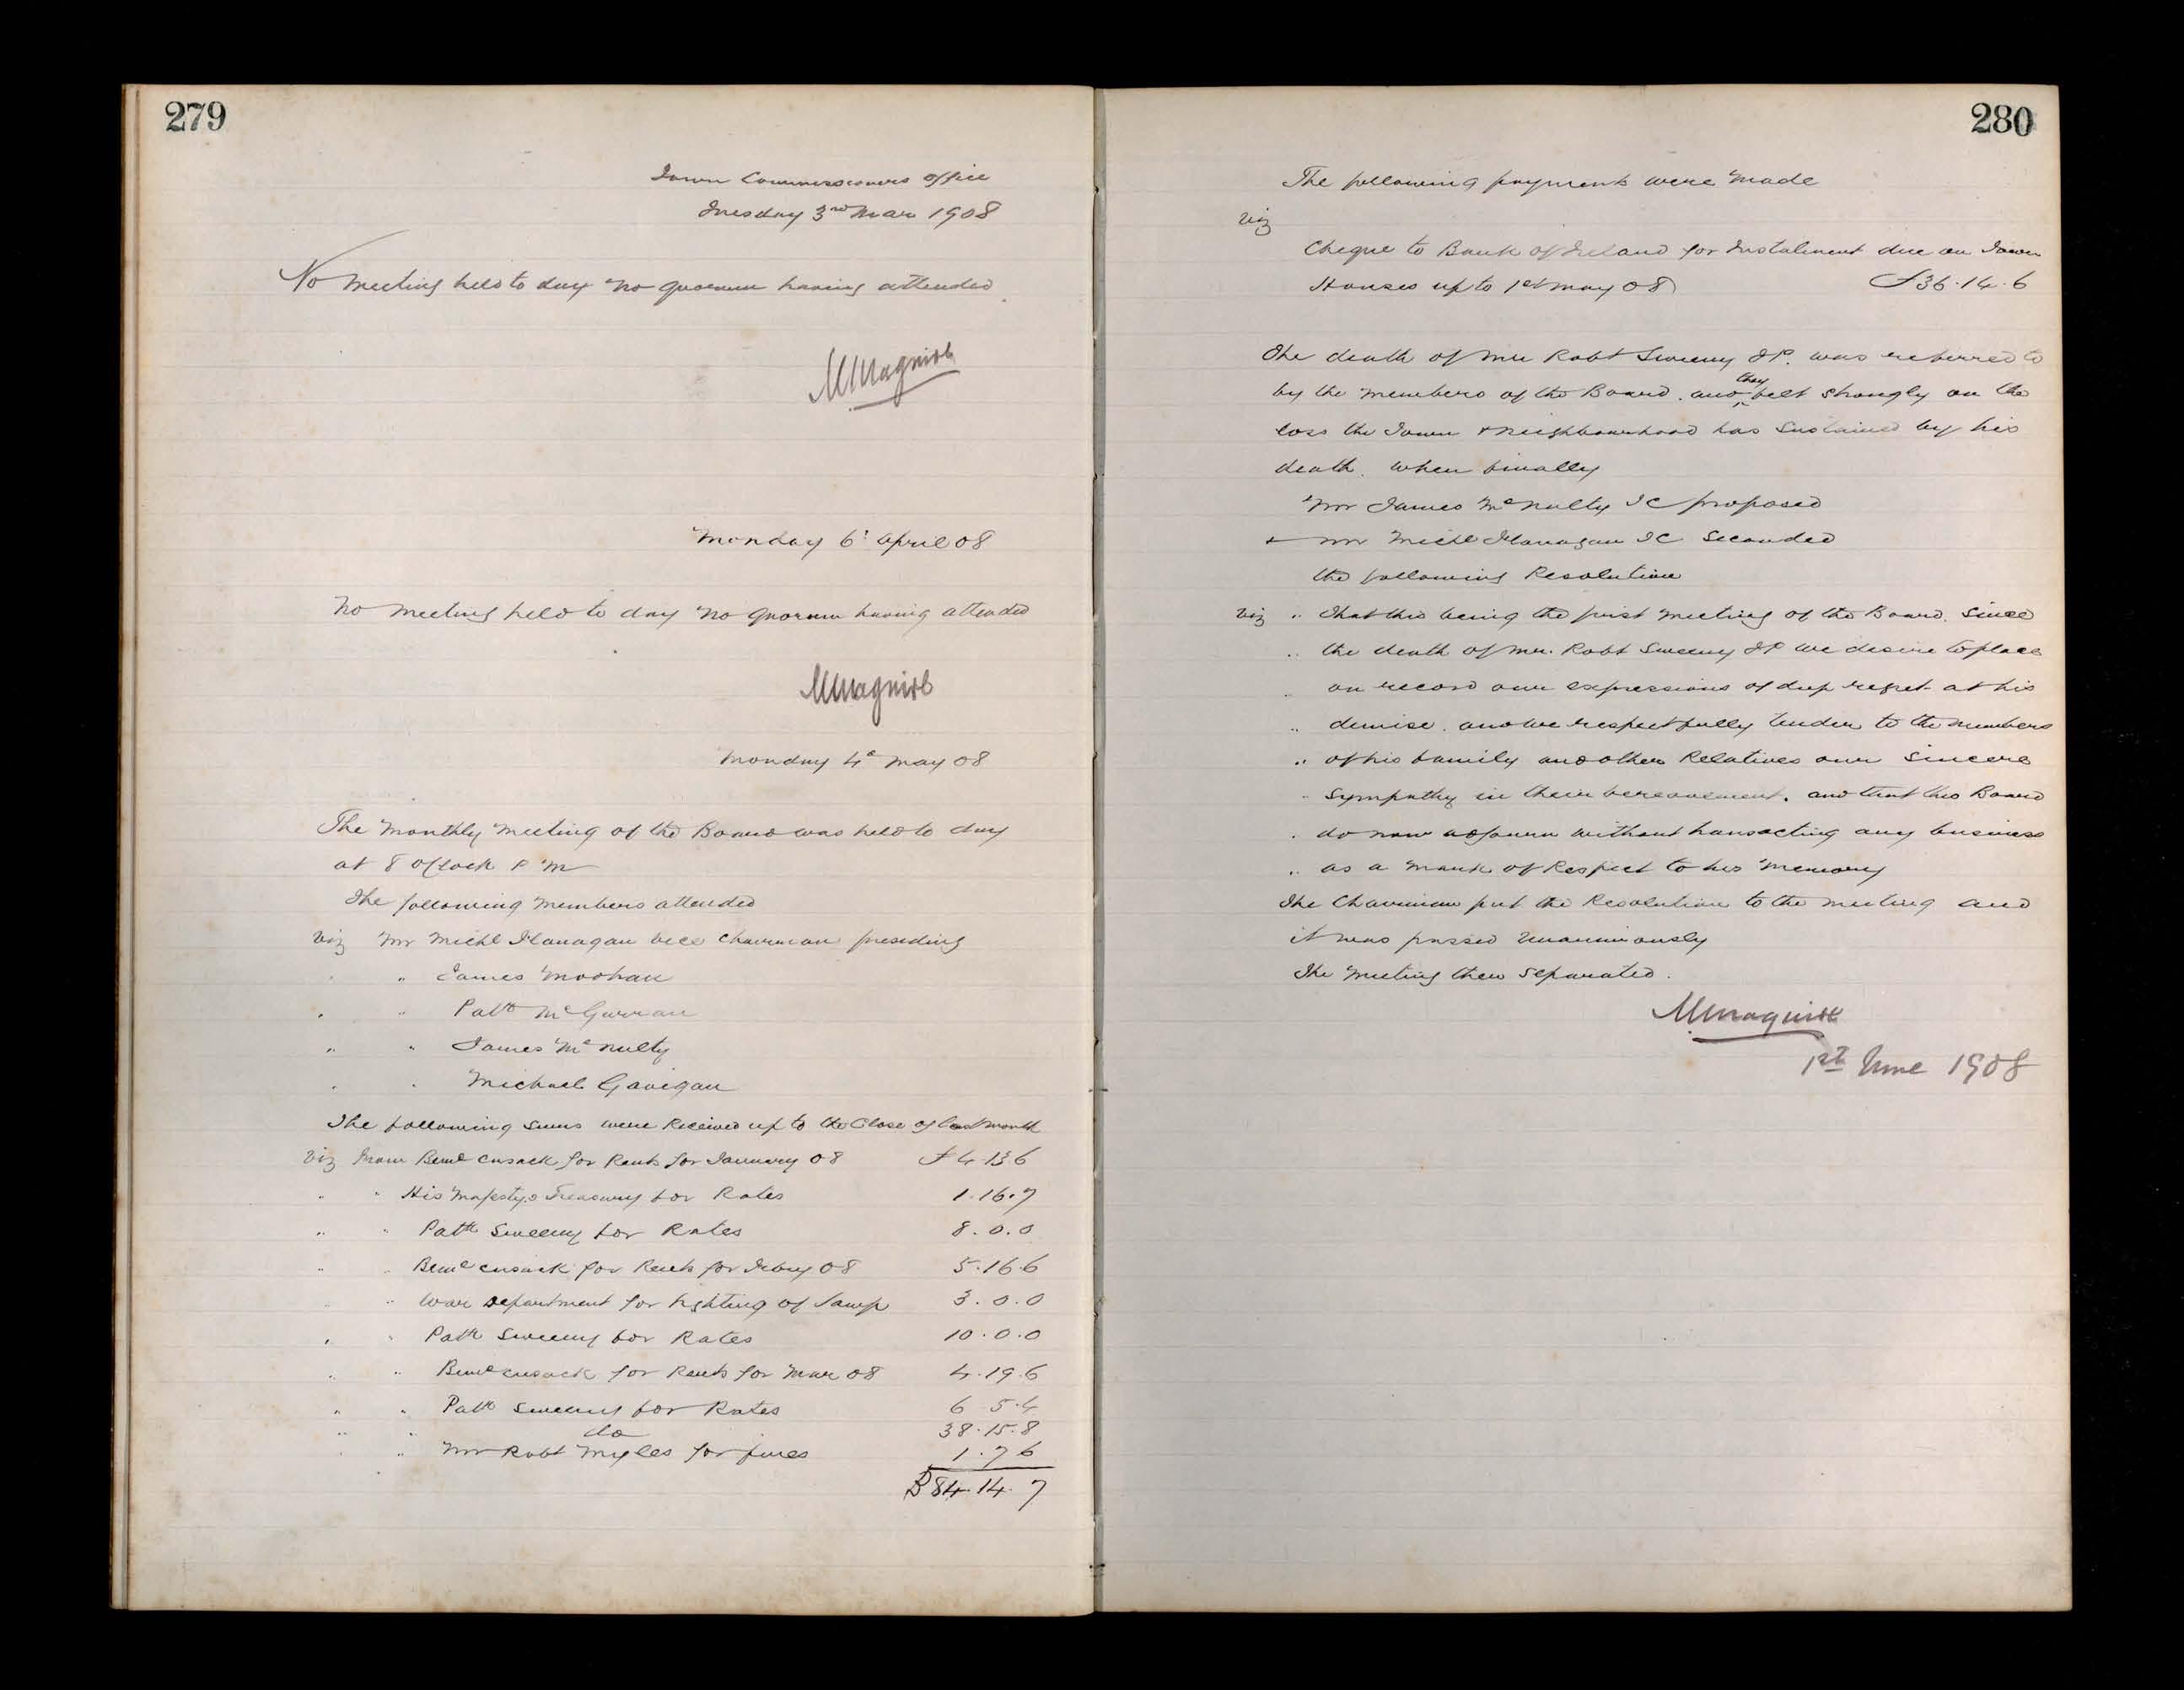 279
Town Commissioners Office
Tuesday 3rd Mar 1908
No Meeting held to day no quorum having attended
MMaguire
Monday 6th April 08
No Meeting held to day no quorum having attended
MMaguire
Monday 4th May 08
The Monthly Meeting of the Board was held to day
at 8 O'Clock P M
The following Members attended
Viz Mr Michl Flanagan Vice Chairman presiding
" " James Moohan
" " Patk McGurran
" " James McNulty
" " Michael Gavigan
The following sums were Received up to the Close of last month
Viz From Bernd Cusack for Rents for January 08 £4.13.6
" " His Majesty's Treasury for Rates 1.16.7
" " Patk Sweeny for Rates 8.0.0
" " Bernd Cusack for Rents for Feby 08 5.16.6
" " War Department for lighting of Lamp 3.0.0
" " Patk Sweeny for Rates 10.0.0
" " Bernd Cusack for Rents for Mar 08 4.19.6
" " Patk Sweeny for Rates 6.5.4
" " do 38.15.8
" " Mr Robt Myles for fines 1.7.6
£84.14.7
280
The following payments were Made
Viz
Cheque to Bank of Ireland for Instalment due on Town
Houses up to 1st May 08 £36.14.6
The death of Mr Robt Sweeny JP. was referred to
by the Members of the Board. and they felt strongly on the
loss the Town & Neighbourhood has Sustained by his
death. When finally
Mr James McNulty TC proposed
& Mr Michl Flanagan TC Seconded
the following Resolution
Viz " That this being the first Meeting of the Board. Since
" the death of Mr. Robt Sweeny JP we desire to place
" on record our expressions of deep regret at his
" demise. and we respectfully tender to the Members
" of his family and other Relatives our Sincere
" Sympathy in their bereavement. and that this Board
" do now adjourn without transacting any business
" as a Mark of Respect to his Memory
The Chairman put the Resolution to the Meeting and
it was passed Unanimously
The Meeting then Separated.
MMaguire
1st June 1908